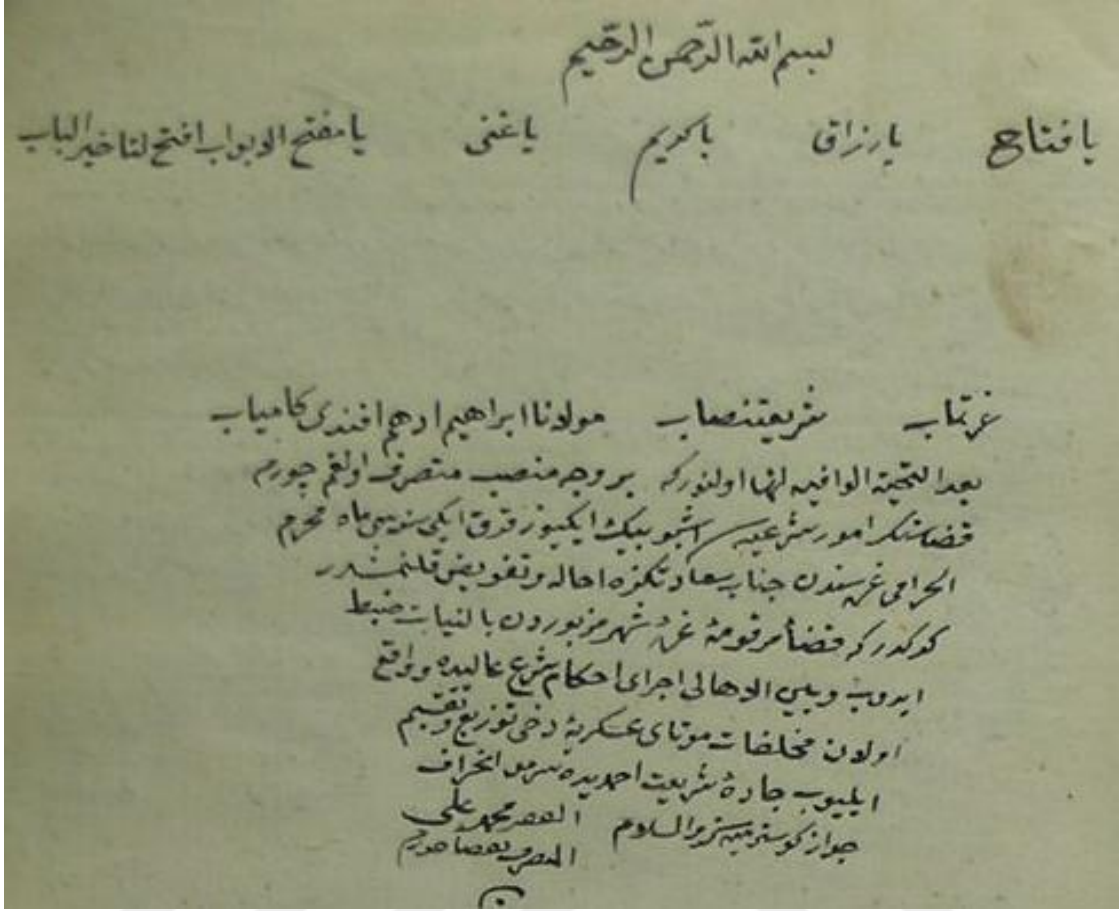 بسم الله الرحمن الرحيم
يا فتاح يا رزاق يا كريم يا غنى يا مفتح الابواب افتح لنا خير الباب
عزتمآب شريعتنصاب مولانا ابراهيم ادهم افندى كامياب
بعد التحية الوافيه انها اولنور كه بر وجه منصب متصرف اولديغم چورم
قضاسنك امور شرعيه سى اشبو بيك ايكيوز قرق ايكى سنه سى ماه محرم
الحرامى غره سندن جناب سعادتكزه احاله و تفويض قلنمشدر
كركدر كه قضاء مرقومه غره شهر مزبوردن بالنيابه ضبط
ايدوب و بين الاهالى اجراى احكام شرع عاليده و واقع
اولان مخلفات موتاى عسكريه دخى توزيع و تقسيم
ايليوب جادۀ شريعت احمديه دن سرمو انحراف
جواز كوسترميه سز والسلام
الفقير محمد على
المتصرف بقضاء چورم